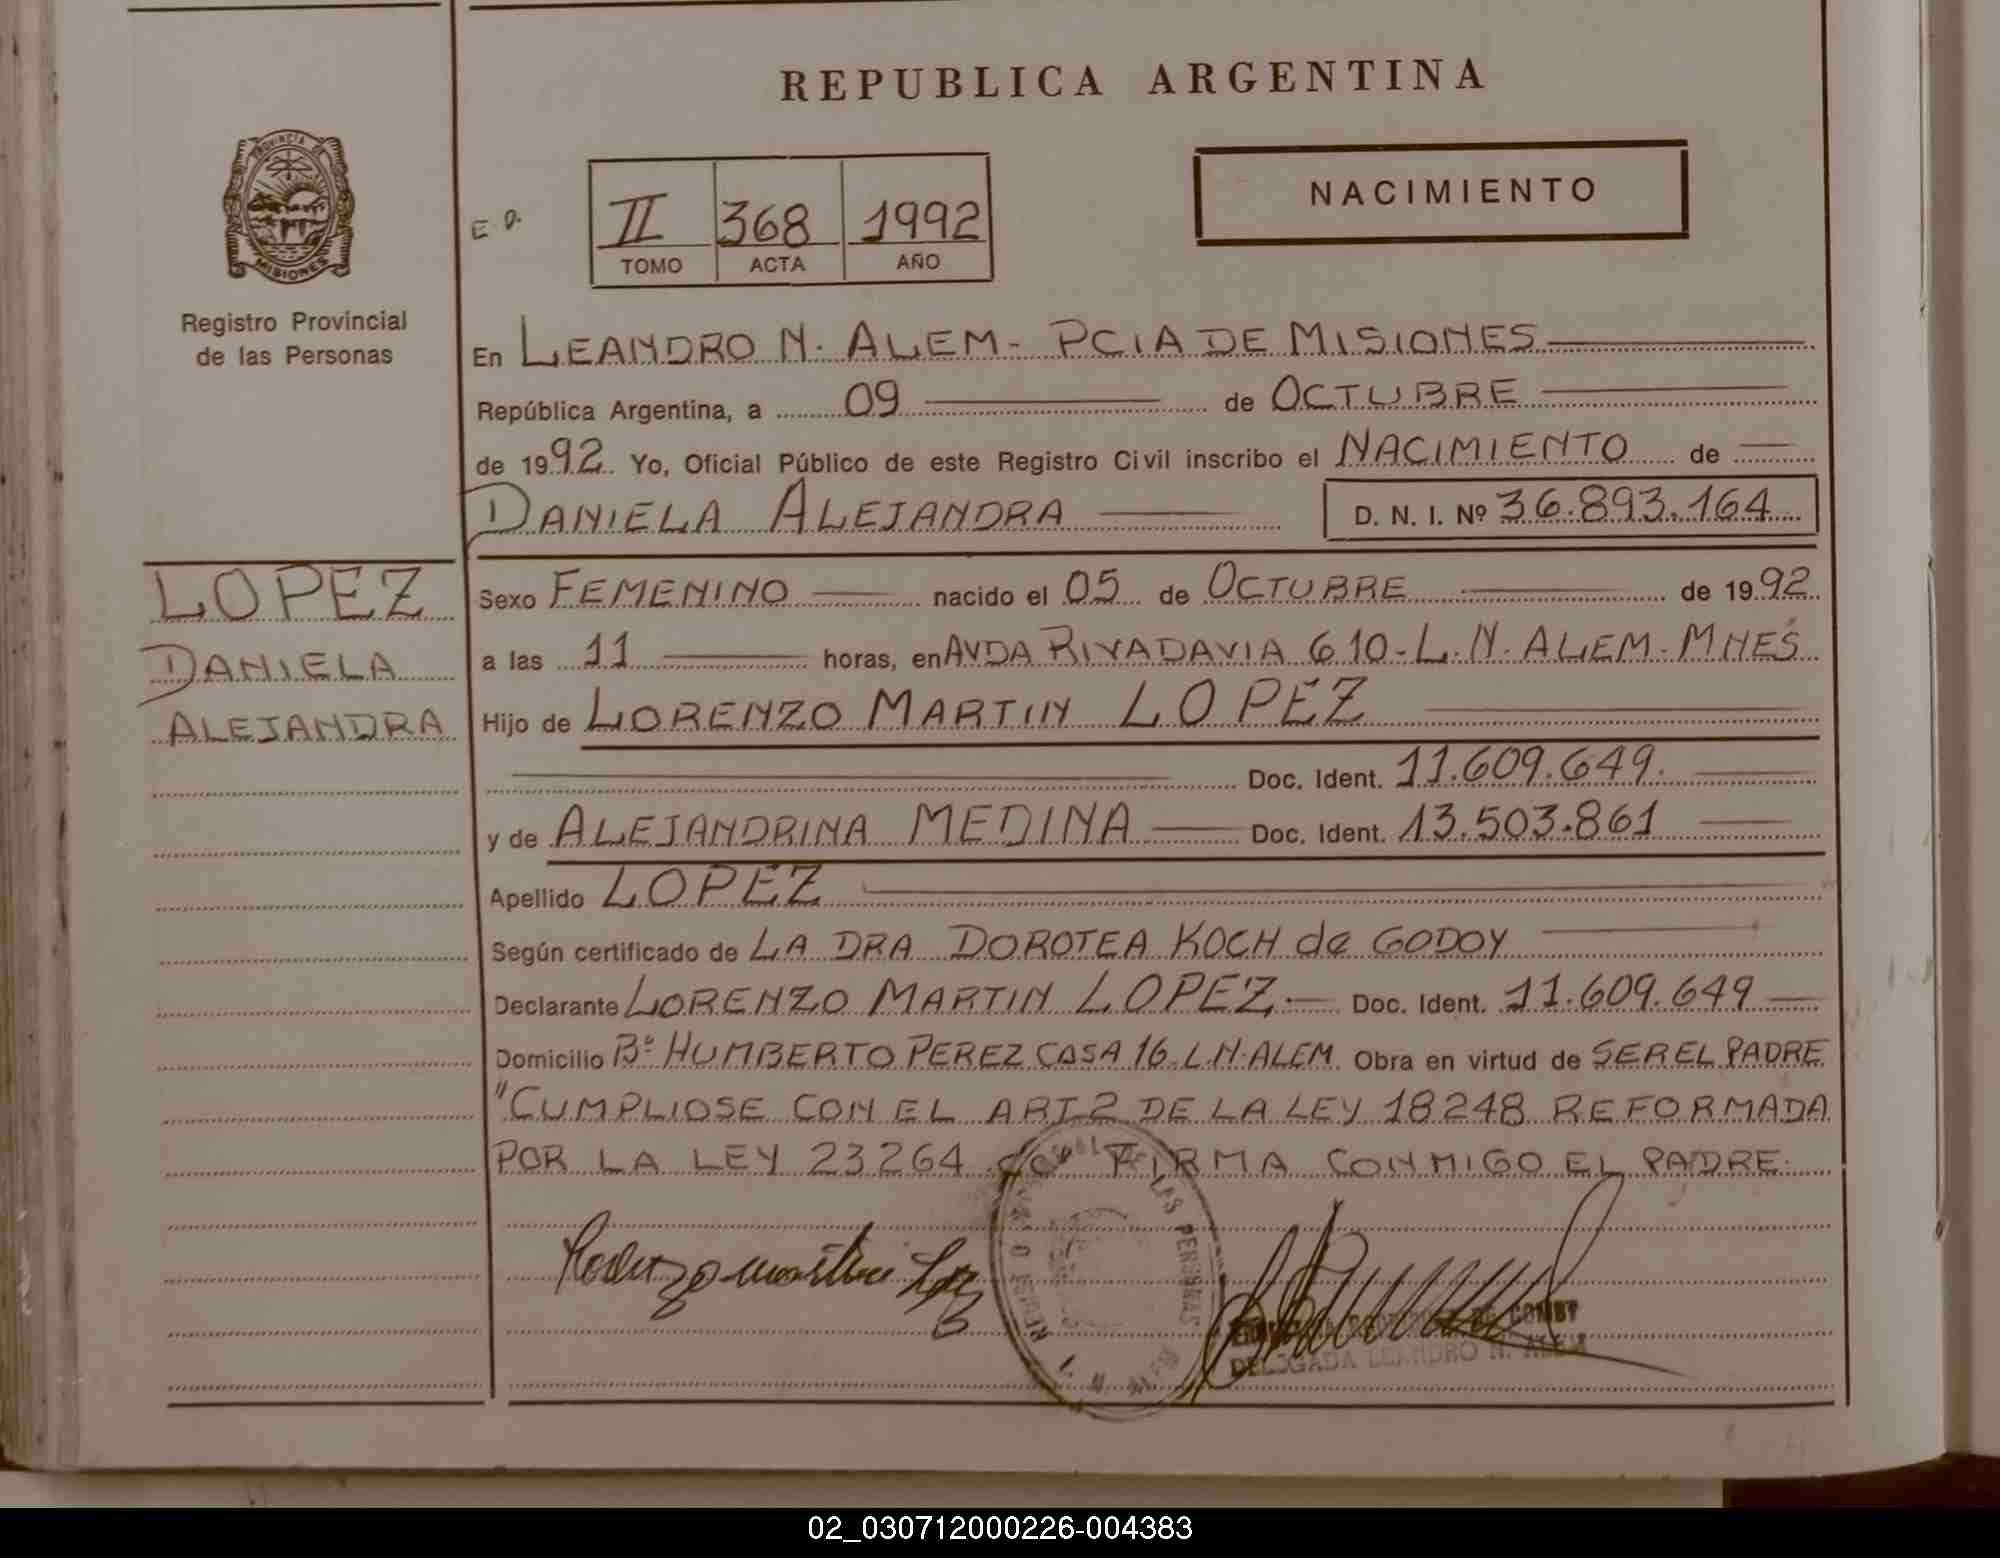 REPUBLICA ARGENTINA
PROVINCIA DE
MISIONES
Registro Provincial
de las Personas
E.D.
II 368 1992
TOMO ACTA AÑO
NACIMIENTO
En LEANDRO N. ALEM - PCIA DE MISIONES
República Argentina, a 09 de OCTUBRE
de 1992. Yo, Oficial Público de este Registro Civil inscribo el NACIMIENTO de
DANIELA ALEJANDRA D. N. I. Nº 36.893.164
LOPEZ
DANIELA
ALEJANDRA
Sexo FEMENINO nacido el 05 de OCTUBRE de 1992
a las 11 horas, en AVDA RIVADAVIA 610-L.N. ALEM-MNES
Hijo de LORENZO MARTIN LOPEZ
Doc. Ident. 11.609.649.
y de ALEJANDRINA MEDINA Doc. Ident. 13.503.861
Apellido LOPEZ
Según certificado de LA DRA DOROTEA KOCH de GODOY
Declarante LORENZO MARTIN LOPEZ Doc. Ident. 11.609.649
Domicilio Bº HUMBERTO PEREZ CASA 16 L.N. ALEM Obra en virtud de SER EL PADRE
"CUMPLIOSE CON EL ART 2 DE LA LEY 18248 REFORMADA
POR LA LEY 23264 FIRMA CONMIGO EL PADRE.
DELEGADA LEANDRO N. ALEM
02_030712000226-004383